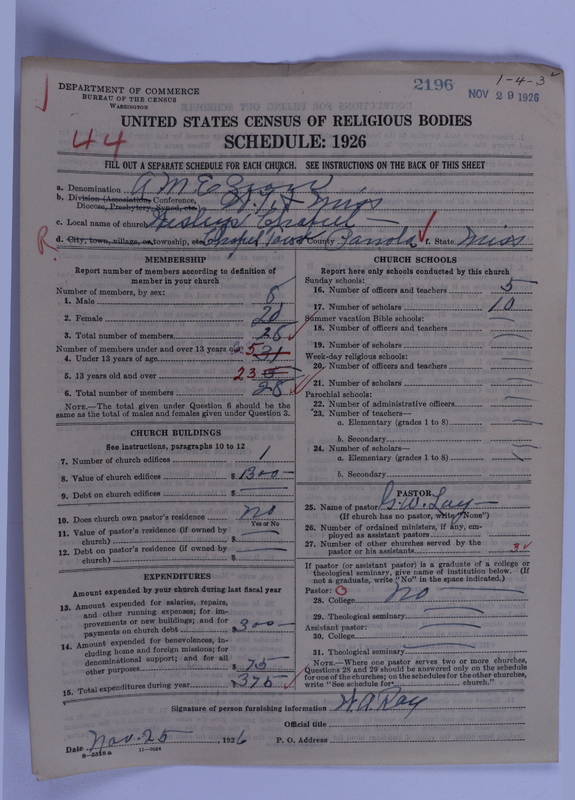 2196
1-4-3
NOV 29 1926
DEPARTMENT OF COMMERCE
BUREAU OF THE CENSUS
WASHINGTON
UNITED STATES CENSUS OF RELIGIOUS BODIES
SCHEDULE: 1926
44
FILL OUT A SEPARATE SCHEDULE FOR EACH CHURCH. SEE INSTRUCTIONS ON THE BACK OF THIS SHEET
a. Denomination A M E Zion
b. Division (Association, Conference, Miss
Diocese, Presbytery, Synod, etc.)
c. Local name of church Chapel
R d. City, town, village, or township, etc. County f. State Miss
MEMBERSHIP
Report number of members according to definition of
member in your church
Number of members, by sex:
1. Male 8
2. Female 20
3. Total number of members 28
Number of members under and over 13 years old:
4. Under 13 years of age 5
5. 13 years old and over 23 5
6. Total number of members 28
NOTE.—The total given under Question 6 should be the
same as the total of males and females given under Question 3.
CHURCH BUILDINGS
See instructions, paragraphs 10 to 12
7. Number of church edifices 1
8. Value of church edifices $ 1300—
9. Debt on church edifices $
10. Does church own pastor's residence No
Yes or No
11. Value of pastor's residence (if owned by
church) $
12. Debt on pastor's residence (if owned by
church) $
EXPENDITURES
Amount expended by your church during last fiscal year
13. Amount expended for salaries, repairs,
and other running expenses; for im-
provements or new buildings; and for
payments on church debt $ 300—
14. Amount expended for benevolences, in-
cluding home and foreign missions; for
denominational support; and for all
other purposes $ 75
15. Total expenditures during year $ 375
CHURCH SCHOOLS
Report here only schools conducted by this church
Sunday schools:
16. Number of officers and teachers 5
17. Number of scholars 10
Summer vacation Bible schools:
18. Number of officers and teachers
19. Number of scholars
Week-day religious schools:
20. Number of officers and teachers
21. Number of scholars
Parochial schools:
22. Number of administrative officers
23. Number of teachers—
a. Elementary (grades 1 to 8)
b. Secondary
24. Number of scholars—
a. Elementary (grades 1 to 8)
b. Secondary
PASTOR
25. Name of pastor G. W. Lay
(If church has no pastor, write "None")
26. Number of ordained ministers, if any, em-
ployed as assistant pastors
27. Number of other churches served by the
pastor or his assistants 3
If pastor (or assistant pastor) is a graduate of a college or
theological seminary, give name of institution below. (If
not a graduate, write "No" in the space indicated.)
Pastor:
28. College No
29. Theological seminary
Assistant pastor:
30. College
31. Theological seminary
NOTE.—Where one pastor serves two or more churches,
Questions 28 and 29 should be answered only on the schedule
for one of the churches; on the schedules for the other churches,
write "See schedule for church."
Signature of person furnishing information W A Ray
Official title
Date Nov. 25, 1926 P. O. Address
8-5518a 11—9684